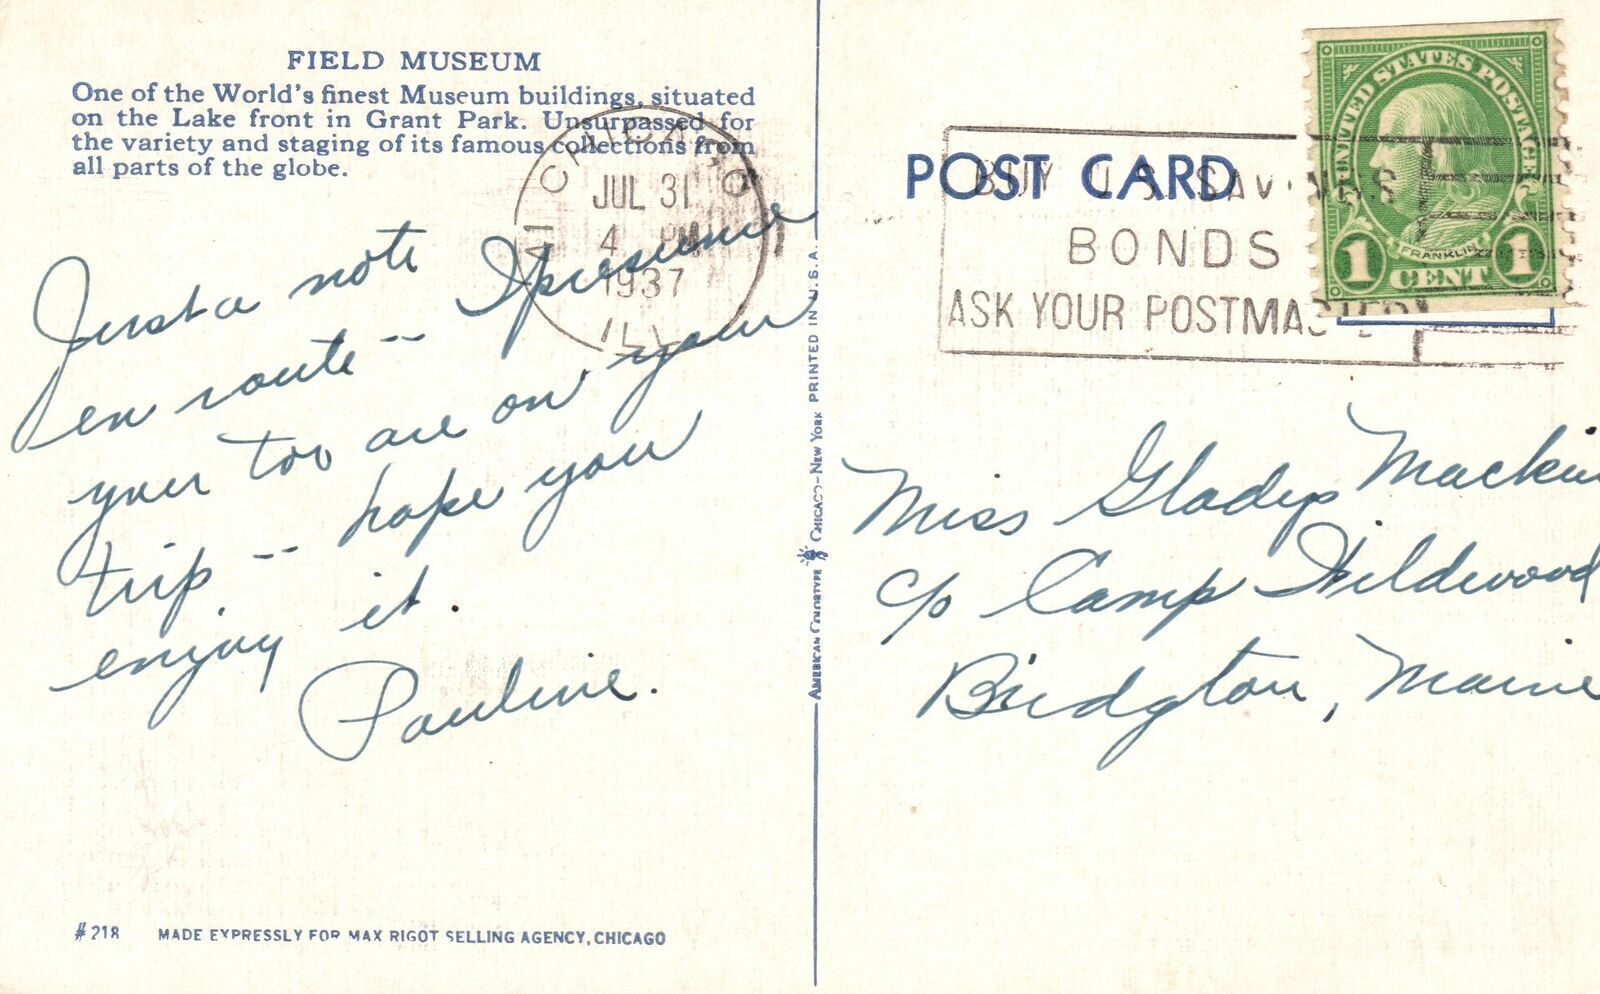 FIELD MUSEUM
One of the World's finest Museum buildings, situated
on the Lake front in Grant Park. Unsurpassed for
the variety and staging of its famous collections from
all parts of the globe.
CHICAGO
JUL 31
4 PM
1937
ILL
Just a note
en route -- I presume
you too are on your
trip -- hope you
enjoy it.
Pauline.
#218 MADE EXPRESSLY FOR MAX RIGOT SELLING AGENCY, CHICAGO
AMERICAN COLORTYPE CHICAGO-NEW YORK PRINTED IN U.S.A.
POST CARD
BUY U.S. SAVINGS
BONDS
ASK YOUR POSTMASTER
UNITED STATES POSTAGE
FRANKLIN
1 CENT 1
Miss Gladys
c/o Camp Wildwood
Bridgton, Maine